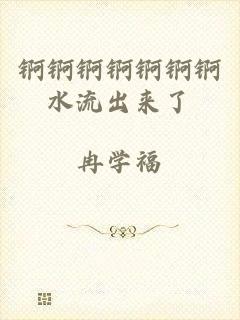 锕锕锕锕锕锕锕
水流出来了
冉学福